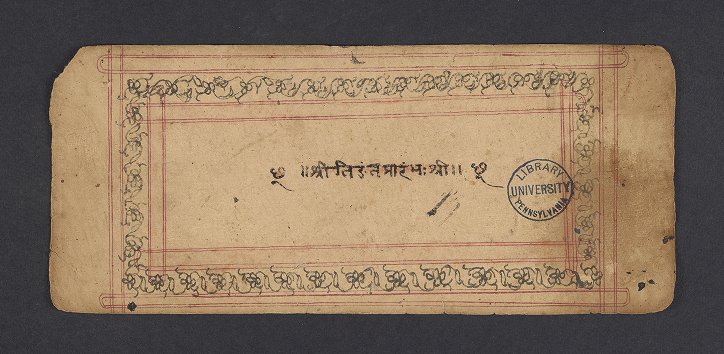 ॥श्रीतिङंतप्रारंभःश्री॥
LIBRARY
UNIVERSITY
PENNSYLVANIA